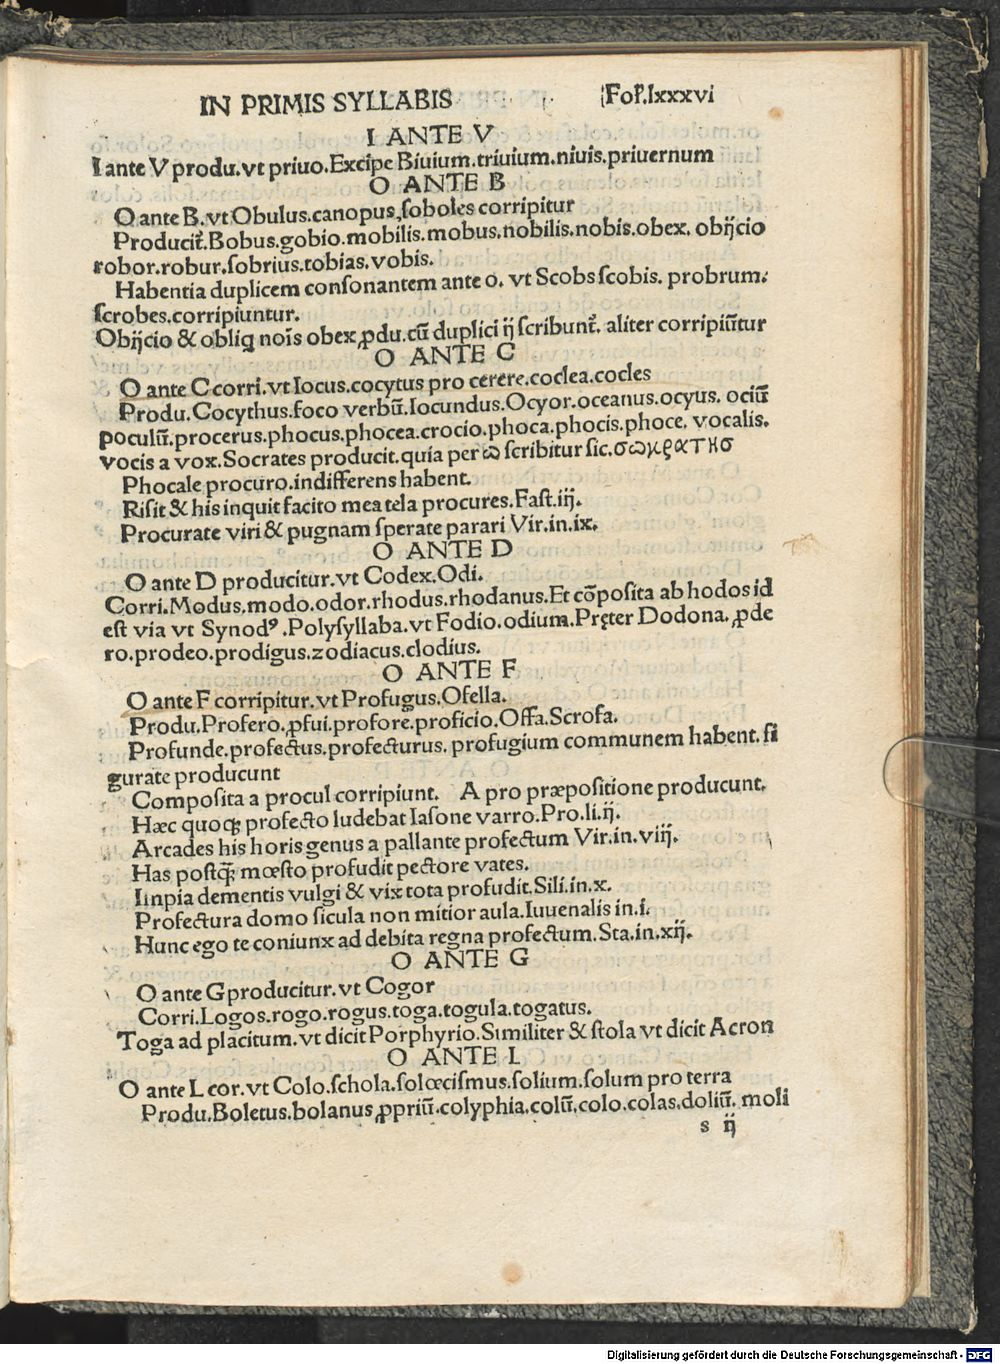 IN PRIMIS SYLLABIS Fol̕.lxxxvi
I ANTE V
I ante V produ.vt priuo.Excipe Biuium.triuium.niuis.priuernum
O ANTE B
O ante B.vt Obulus.canopus.ſoboles corripitur
Producit᷑.Bobus.gobio.mobilis.mobus.nobilis.nobis.obex. obijcio
robor.robur.ſobrius.tobias.vobis.
Habentia duplicem conſonantem ante o. vt Scobs ſcobis. probrum.
ſcrobes.corripiuntur.
Obijcio & obliq noīs obex ꝓdu.cū duplici ij ſcribunt᷑. aliter corripiūtur
O ANTE C
O ante C corri.vt Iocus.cocytus pro cerere.coclea.cocles
Produ.Cocythus.foco verbū.Iocundus.Ocyor.oceanus.ocyus. ociū
poculū.procerus.phocus.phocea.crocio.phoca.phocis.phoce. vocalis.
vocis a vox.Socrates producit.quia per ω ſcribitur ſic.σωκρατησ
Phocale procuro.indifferens habent.
Riſit & his inquit facito mea tela procures.Faſt.iij.
Procurate viri & pugnam ſperate parari Vir.in.ix.
O ANTE D
O ante D producitur.vt Codex.Odi.
Corri.Modus.modo.odor.rhodus.rhodanus.Et cōpoſita ab hodos id
eſt via vt Synodꝰ.Polyſyllaba.vt Fodio.odium.Pręter Dodona. ꝓde
ro.prodeo.prodigus.zodiacus.clodius.
O ANTE F
O ante F corripitur.vt Profugus.Ofella.
Produ.Profero.ꝓfui.profore.proficio.Offa.Scrofa.
Profunde.profectus.profecturus. profugium communem habent. ſi
gurate producunt
Compoſita a procul corripiunt. A pro præpoſitione producunt.
Hæc quoqꝫ profecto ludebat Iaſone varro.Pro.li.ij.
Arcades his horis genus a pallante profectum Vir.in.viij.
Has poſtqꝫ mœſto profudit pectore vates.
Iinpia dementis vulgi & vix tota profudit.Sili.in.x.
Profectura domo ſicula non mitior aula.Iuuenalis in.i.
Hunc ego te coniunx ad debita regna profectum.Sta.in.xij.
O ANTE G
O ante G producitur.vt Cogor
Corri.Logos.rogo.rogus.toga.togula.togatus.
Toga ad placitum.vt dicit Porphyrio.Similiter & ſtola vt dicit Acron
O ANTE L
O ante L cor.vt Colo.ſchola.ſolœciſmus.ſolium.ſolum pro terra
Produ.Boletus.bolanus.ꝓpriū.colyphia.colū.colo.colas.doliū. moli
s ij
Digitalisierung gefördert durch die Deutsche Forschungsgemeinschaft - DFG